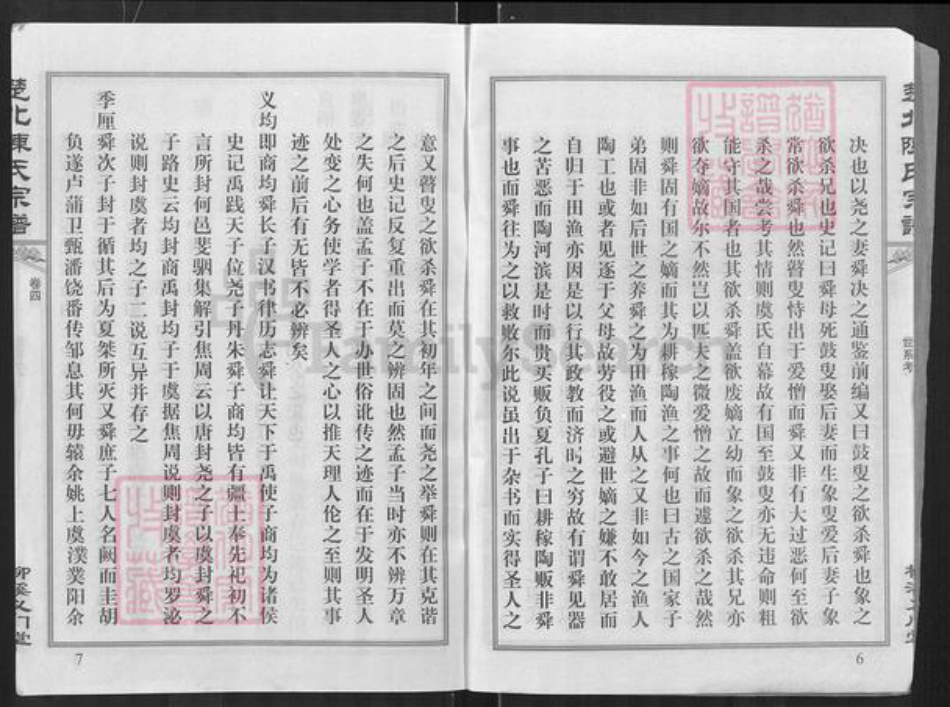 决也以尧之妻舜决之通鉴前编又曰鼓叟之欲杀舜也象之
欲杀兄也史记曰舜母死鼓叟娶后妻而生象叟爱后妻子象
常欲杀舜也然瞽叟恃出于爱憎而舜又非有大过恶何至欲
杀之哉尝考其情则虞氏自幕故有国至鼓叟亦无违命则粗
能守其国者也其欲杀舜盖欲废嫡立幼而象之欲杀其兄亦
欲夺嫡故尔不然岂以匹夫之微爱憎之故而遽欲杀之哉然
则舜固有国之嫡而其为耕稼陶渔之事何也曰古之国家子
弟固非如后世之养舜之为田渔而人从之又非如今之渔人
陶工也或者见逐于父母故劳役之或避世嫡之嫌不敢居而
自归于田渔亦因是以行其政教而济时之穷故有谓舜见器
之苦恶而陶河滨是时而贵买贩负夏孔子曰耕稼陶贩非舜
事也而舜往为之以救败尔此说虽出于杂书而实得圣人之
6
世系考
楚北陳氏宗譜
卷四
柳溪义门堂
意又瞽叟之欲杀舜在其初年之间而尧之举舜则在其克谐
之后史记反复重出而莫之辨固也然孟子当时亦不辨万章
之失何也盖孟子不在于办世俗讹传之迹而在于发明圣人
处变之心务使学者得圣人之心以推天理人伦之至则其事
迹之前后有无皆不必辨矣
义均即商均舜长子汉书律历志舜让天下于禹使子商均为诸侯
史记禹践天子位尧子丹朱舜子商均皆有疆土奉先祀初不
言所封何邑斐骃集解引焦周云以唐封尧之子以虞封舜之
子路史云均封商禹封均子于虞据焦周说则封虞者均罗泌
说则封虞者均之子二说互异并存之
季厘舜次子封于循其后为夏桀所灭又舜庶子七人名阙而圭胡
负遂卢蒲卫甄潘饶番传邹息其何毋辕余姚上虞濮爂阳余
7